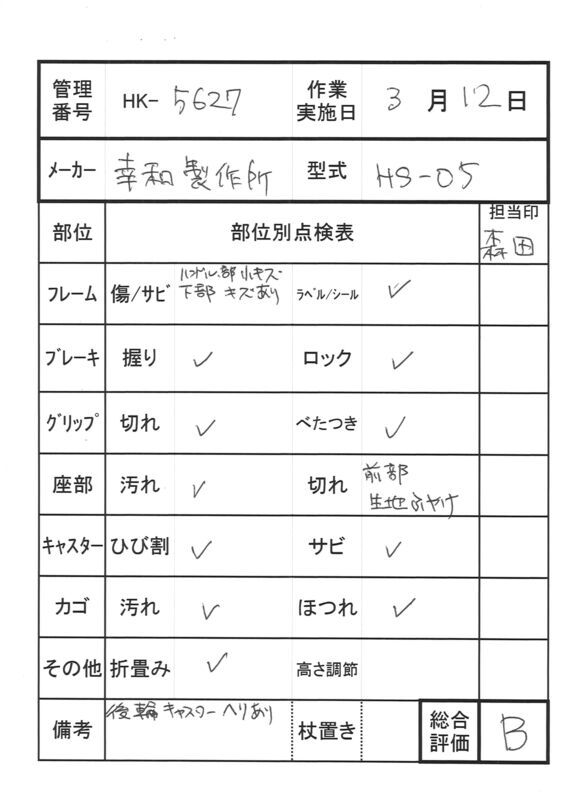 管理番号 HK- 5627 作業実施日 3 月 12 日
メーカー 幸和製作所 型式 HS-05
部位 部位別点検表 担当印 森田
フレーム 傷/サビ ハンドル部小キズ 下部 キズあり ラベル/シール ✓
ブレーキ 握り ✓ ロック ✓
グリップ 切れ ✓ べたつき ✓
座部 汚れ ✓ 切れ 前部 生地ふやけ
キャスター ひび割 ✓ サビ ✓
カゴ 汚れ ✓ ほつれ ✓
その他 折畳み ✓ 高さ調節
備考 後輪キャスターヘリあり 杖置き 総合評価 B